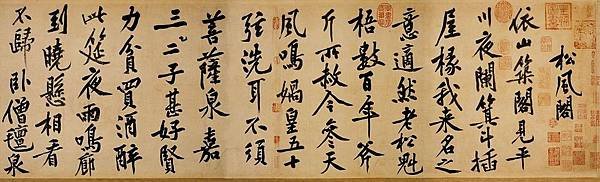 松風閣
依山築閣見平
川夜闌箕斗插
屋椽我來名之
意適然老松魁
梧數百年斧
斤所赦令參天
風鳴媧皇五十
弦洗耳不須
菩薩泉嘉
三二子甚好賢
力貧買酒醉
此筵夜雨鳴廊
到曉懸相看
不歸臥僧氊泉